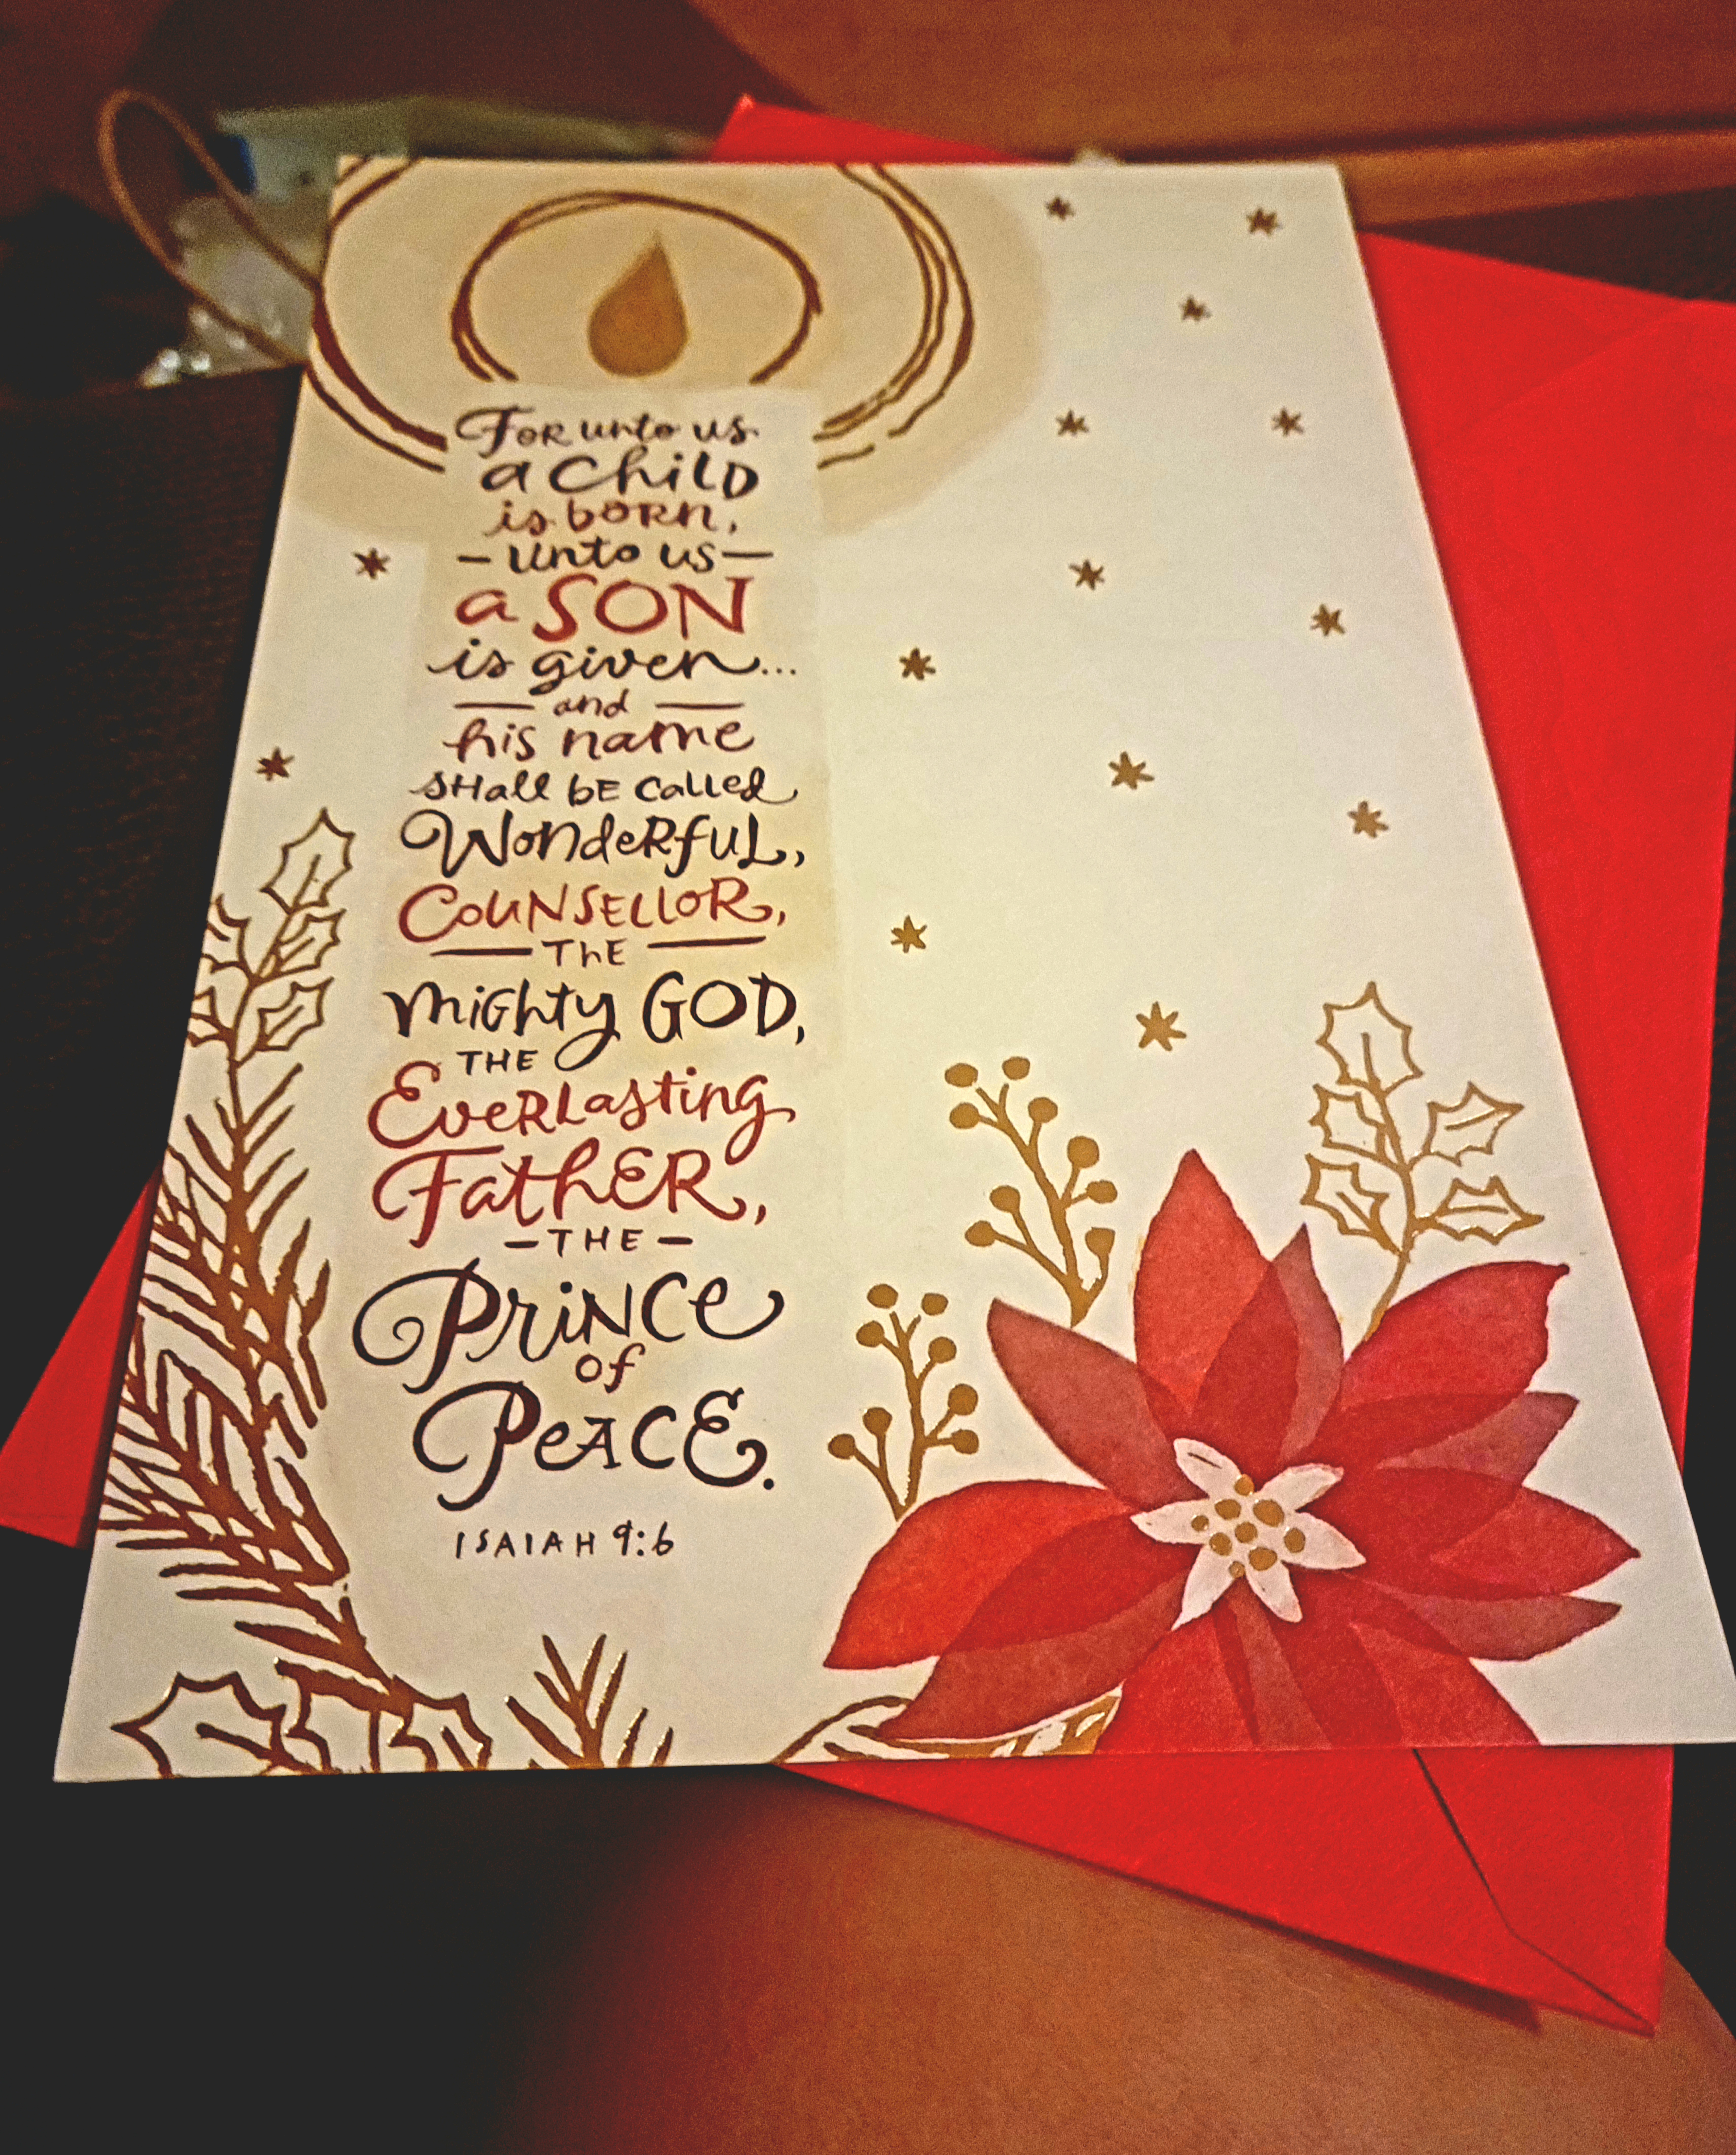 For unto us
a Child
is born,
- unto us -
a SON
is given...
- and -
his name
shall be called
Wonderful,
Counsellor,
- The -
mighty GOD,
THE
Everlasting
Father,
- THE -
Prince
of
Peace.
ISAIAH 9:6